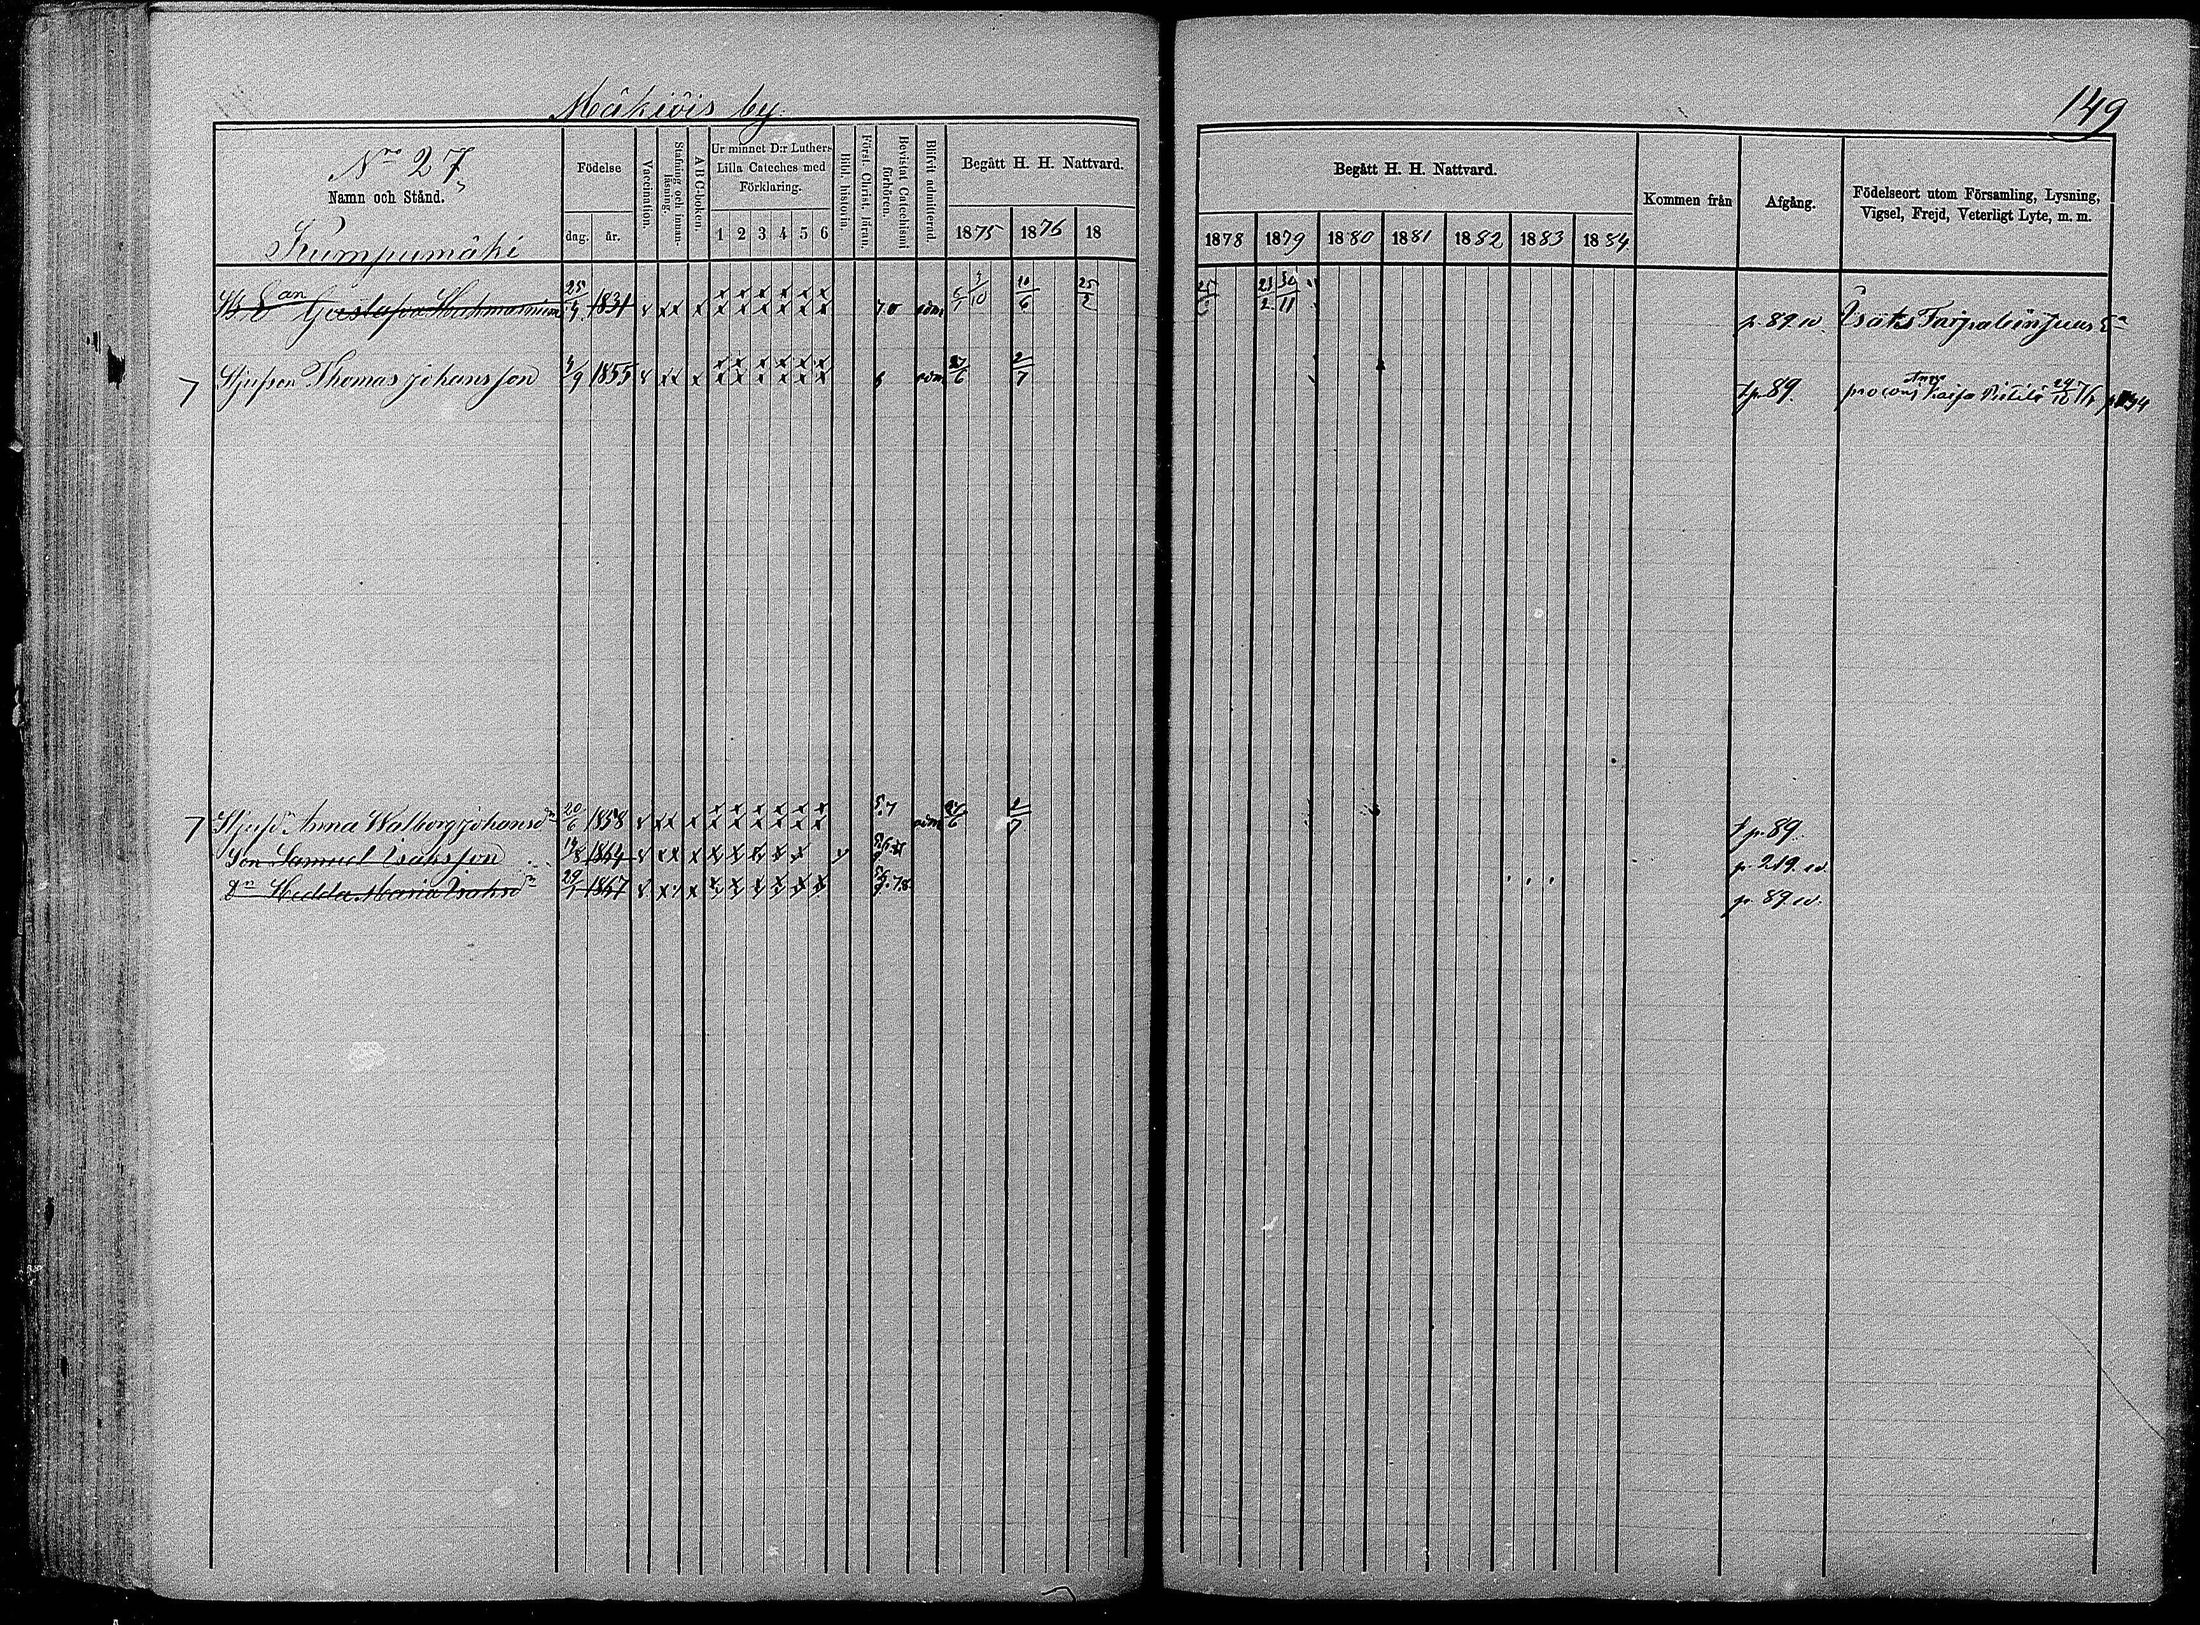 Mäkiöis by.
149
Nro 27,
Namn och Stånd.
Kumpumäki
Födelse
dag. år.
Vaccination.
Stafning och innanläsning.
A B C-boken.
Ur minnet D:r Luthers Lilla Cateches med Förklaring.
1 2 3 4 5 6
Bibl. historia.
Först. Christ. läran.
Bevistat Catechismi förhören.
Blifvit admitterad.
Begått H. H. Nattvard.
1875 1876 18
Begått H. H. Nattvard.
1878 1879 1880 1881 1882 1883 1884
Kommen från
Afgång.
Födelseort utom Församling, Lysning, Vigsel, Frejd, Veterligt Lyte, m. m.
Gustafva 25/4 1831 v xx x x x x x x x 70 adm 10/6 25/2 23/2 30/11 p. 89. w. Isaks
7 Stjufson Thomas Johansson 4/9 1855 v xx x x x x x x x 8 adm 27/6 2/7 † p. 89. Anna Kaisa 29/10 76
7 Anna Walborg Johansd 20/6 1858 v xx x x x x x x x 5.7 adm 27/6 2/7 † p. 89.
Son Samuel Isaksson 19/8 1864 v xx x x x x x x x p. 219. w.
Dr Hedda Maria Isaksd 29/7 1867 v xx x x x x x x x p. 89. w.